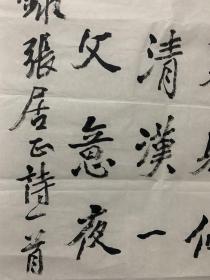 清漢一
父意夜
錄張居正詩一首